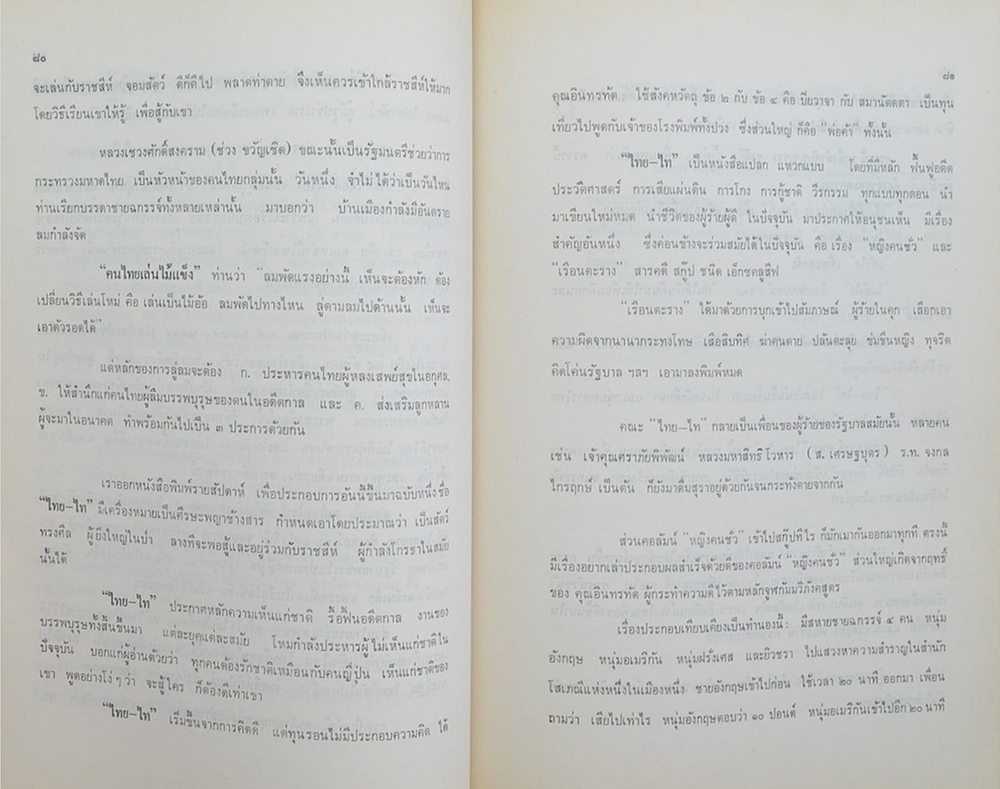 ๘๐
จะเล่นกับราชสีห์ จอมสัตว์ ดีก็ดีไป พลาดท่าตาย จึงเห็นควรเข้าใกล้ราชสีห์ให้มาก
โดยวิธีเรียนเขาให้รู้ เพื่อสู้กับเขา
หลวงเชวงศักดิ์สงคราม (ช่วง ขวัญเชิด) ขณะนั้นเป็นรัฐมนตรีช่วยว่าการ
กระทรวงมหาดไทย เป็นหัวหน้าของคนไทยกลุ่มนั้น วันหนึ่ง จำไม่ได้ว่าเป็นวันไหน
ท่านเรียกบรรดาชายฉกรรจ์ทั้งหลายเหล่านั้น มาบอกว่า บ้านเมืองกำลังมีอันตราย
ลมกำลังจัด
"คนไทยเล่นไม้แข็ง" ท่านว่า "ลมพัดแรงอย่างนี้ เห็นจะต้องหัก ต้อง
เปลี่ยนวิธีเล่นใหม่ คือ เล่นเป็นไม้อ้อ ลมพัดไปทางไหน ลู่ตามลมไปด้านนั้น เห็นจะ
เอาตัวรอดได้"
แต่หลักของการลู่ลมจะต้อง ก. ประหารคนไทยผู้หลงเสพย์สุขในอกุศล,
ข. ให้สำนึกแก่คนไทยผู้ลืมบรรพบุรุษของตนในอดีตกาล และ ค. ส่งเสริมลูกหลาน
ผู้จะมาในอนาคต ทำพร้อมกันไปเป็น ๓ ประการด้วยกัน
เราออกหนังสือพิมพ์รายสัปดาห์ เพื่อประกอบการอันนี้ขึ้นมาฉบับหนึ่ง ชื่อ
"ไทย-ไท" มีเครื่องหมายเป็นศีรษะพญาช้างสาร กำหนดเอาโดยประมาณว่า เป็นสัตว์
ทรงศีล ผู้ยิ่งใหญ่ในป่า ลางทีจะพอสู้และอยู่ร่วมกับราชสีห์ ผู้กำลังโกรธาในสมัย
นั้นได้
"ไทย-ไท" ประกาศหลักความเห็นแก่ชาติ รื้อฟื้นอดีตกาล งานของ
บรรพบุรุษทั้งสิ้นขึ้นมา แต่ละยุคแต่ละสมัย โหมกำลังประหารผู้ไม่เห็นแก่ชาติใน
ปัจจุบัน บอกแก่ผู้อ่านด้วยว่า ทุกคนต้องรักชาติเหมือนกับคนญี่ปุ่น เห็นแก่ชาติของ
เขา พูดอย่างโง่ ๆ ว่า จะสู้ใคร ก็ต้องดีเท่าเขา
"ไทย-ไท" เริ่มขึ้นจากการคิดดี แต่ทุนรอนไม่มีประกอบความคิด ได้
๘๑
คุณอินทรทัต ใช้สังคหวัตถุ ข้อ ๒ กับ ข้อ ๔ คือ ปิยวาจา กับ สมานัตตตา เป็นทุน
เที่ยวไปพูดกับเจ้าของโรงพิมพ์ทั้งปวง ซึ่งส่วนใหญ่ ก็คือ "พ่อค้า" ทั้งนั้น
"ไทย-ไท" เป็นหนังสือแปลก แหวกแบบ โดยที่มีหลัก ฟื้นฟูอดีต
ประวัติศาสตร์ การเสียแผ่นดิน การโกง การกู้ชาติ วีรกรรม ทุกแบบทุกตอน นำ
มาเขียนใหม่หมด นำชีวิตของผู้ร้ายผู้ดี ในปัจจุบัน มาประกาศให้อนุชนเห็น มีเรื่อง
สำคัญอันหนึ่ง ซึ่งค่อนข้างจะร่วมสมัยได้ในปัจจุบัน คือ เรื่อง "หญิงคนชั่ว" และ
"เรือนตะราง" สารคดี สกู๊ป ชนิด เอ็กซคลูสีฟ
"เรือนตะราง" ได้มาด้วยการบุกเข้าไปสัมภาษณ์ ผู้ร้ายในคุก เลือกเอา
ความผิดจากนานากระทงโทษ เสือสิบทิศ ฆ่าคนตาย ปล้นตะลุย ข่มขืนหญิง ทุจริต
คิดโค่นรัฐบาล ฯลฯ เอามาลงพิมพ์หมด
คณะ "ไทย-ไท" กลายเป็นเพื่อนของผู้ร้ายของรัฐบาลสมัยนั้น หลายคน
เช่น เจ้าคุณศราภัยพิพัฒน์ หลวงมหาสิทธิโวหาร (ส. เศรษฐบุตร) ร.ท. จงกล
ไกรฤกษ์ เป็นต้น ก็ยังมาดื่มสุราอยู่ด้วยกันจนกระทั่งตายจากกัน
ส่วนคอลัมน์ "หญิงคนชั่ว" เข้าไปสกู๊ปทีไร ก็มักเมากันออกมาทุกที ตรงนี้
มีเรื่องอยากเล่าประกอบผลสำเร็จด้วยดีของคอลัมน์ "หญิงคนชั่ว" ส่วนใหญ่เกิดจากฤทธิ์
ของ คุณอินทรทัต ผู้กระทำความดีไว้ตามหลักจุฬกัมมวิภังคสูตร
เรื่องประกอบเทียบเคียงเป็นทำนองนี้: มีสหายชายฉกรรจ์ ๔ คน หนุ่ม
อังกฤษ หนุ่มอเมริกัน หนุ่มฝรั่งเศส และยิวชรา ไปแสวงหาความสำราญในสำนัก
โสเภณีแห่งหนึ่งในเมืองหนึ่ง ชายอังกฤษเข้าไปก่อน ใช้เวลา ๒๐ นาที ออกมา เพื่อน
ถามว่า เสียไปเท่าไร หนุ่มอังกฤษตอบว่า ๑๐ ปอนด์ หนุ่มอเมริกันเข้าไปอีก ๒๐ นาที